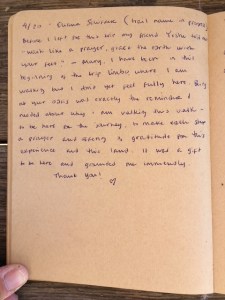 4/20 - Susana Squirrel (trail name in progress)
Before I left for this hike my friend Yesha told me
"Walk like a prayer, greet the earth with
your feet" - Many, I have been in this
beginning of the trip limbo where I am
walking but I don't yet feel fully here. Being
at your oasis was exactly the reminder I
needed about why I am walking this walk -
to be here on the journey, to make each step
a prayer and offering of gratitude for this
experience and this land. It was a gift
to be here and grounded me immensely.
Thank you!